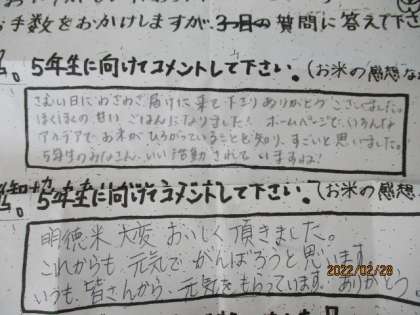 お手数をおかけしますが、3つ目の質問に答えて下さ
5年生に向けてコメントして下さい。(お米の感想な
さむい日にわざわざ届けに来て下さりありがとうございました。
ほくほくの甘いごはんになりました！ホームページで、いろんな
アイデアでお米がひろがっていることを知り、すごいと思いました。
5年生のみなさん、いい活動されていますね！
5年生に向けてコメントして下さい。(お米の感想
明徳米 大変 おいしく 頂きました。
これからも 元気で がんばろうと 思います。
いつも、皆さんから、元気をもらっています。ありがとう
2022/02/28